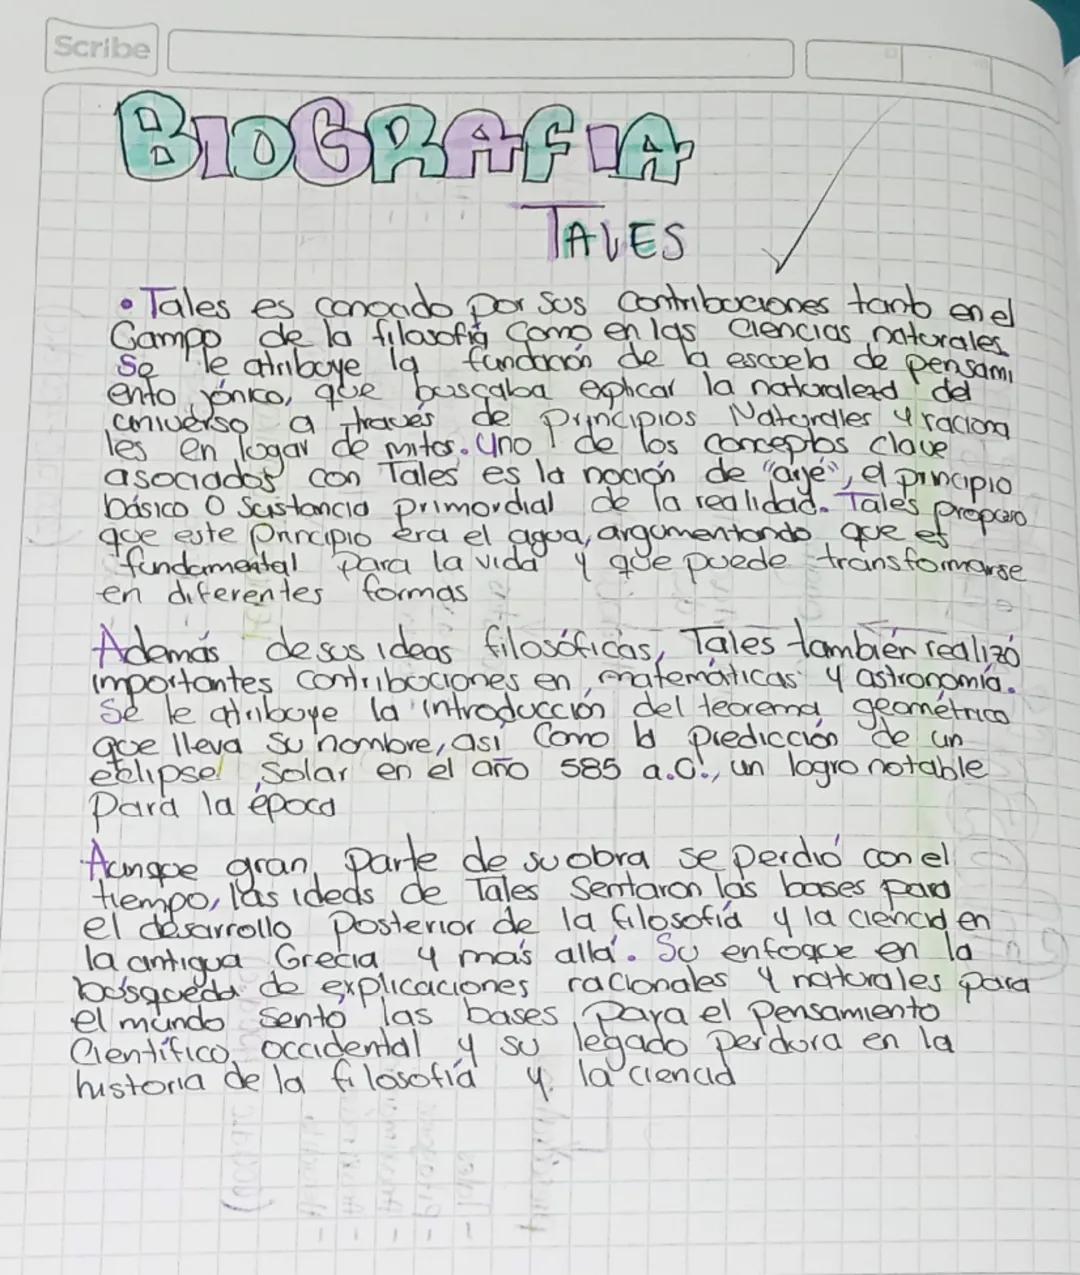 Scribe
BIOGRAFIA
TALES
• Tales es conocido por sus contribuciones tanto en el
Campo de la filosofía como en las Ciencias naturales.
Se le atribuye la fundación de la escuela de pensami
ento jónico, que buscaba explicar la naturaleza del
universo a través de principios Naturales y raciona
les en lugar de mitos. Uno de los conceptos clave
asociados con Tales es la noción de "arjé", el principio
básico o Sustancia primordial de la realidad. Tales propuso
que este Principio era el agua, argumentando que es
fundamental para la vida y que puede transformarse
en diferentes formas
Además de sus ideas filosóficas, Tales también realizó
importantes contribuciones en matemáticas y astronomía.
Se le atribuye la introducción del teorema geométrico
que lleva su nombre, así Como la predicción de un
eclipse Solar en el año 585 a.C., un logro notable
para la época
Aunque gran parte de su obra se perdió con el
tiempo, las ideas de Tales Sentaron las bases para
el desarrollo Posterior de la filosofía y la ciencia en
la antigua Grecia y más allá. Su enfoque en la
búsqueda de explicaciones racionales y naturales para
el mundo sentó las bases para el Pensamiento
Científico occidental y su legado perdura en la
historia de la filosofía y la ciencia